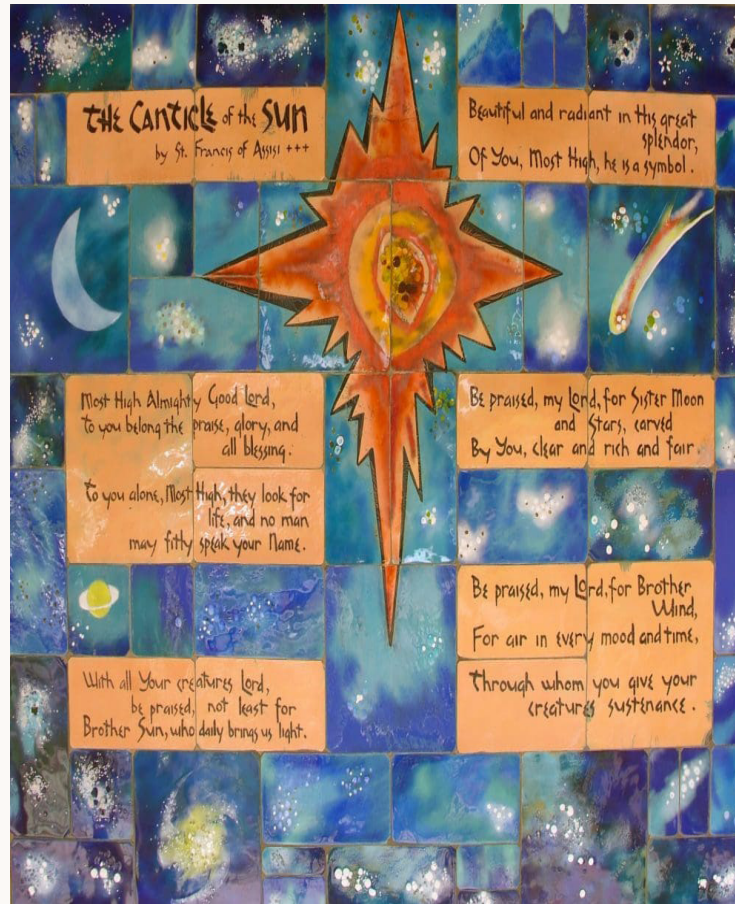 THE CANTICLE of the SUN
by St. Francis of Assisi +++
Most High Almighty Good Lord,
to you belong the praise, glory, and
all blessing.
to you alone, Most High, they look for
life, and no man
may fitly speak your Name.
With all Your creatures Lord,
be praised, not least for
Brother Sun, who daily brings us light.
Beautiful and radiant in this great
splendor,
Of You, Most High, he is a symbol.
Be praised, my Lord, for Sister Moon
and Stars, carved
By You, clear and rich and fair.
Be praised, my Lord, for Brother
Wind,
For air in every mood and time,
Through whom you give your
creatures sustenance.